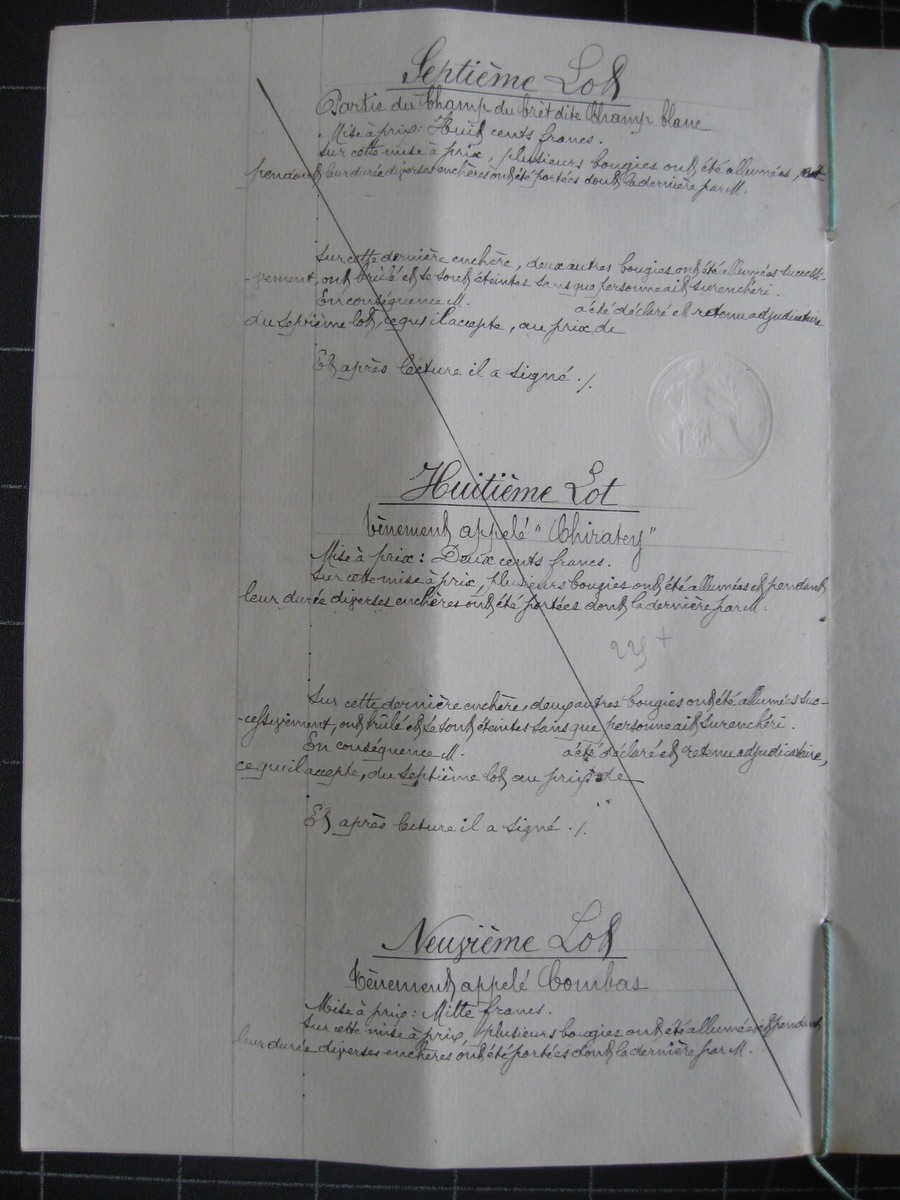 Septième Lot
Partie du Champ du Crêt dite Champ blanc
Mise à prix: Huit cents francs.
Sur cette mise à prix, plusieurs bougies ont été allumées, et
pendant leur durée diverses enchères ont été portées dont la dernière par M.
Sur cette dernière enchère, deux autres bougies ont été allumées successi-
-vement, ont brûlé et se sont éteintes sans que personne ait surenchéri.
En conséquence M. a été déclaré et retenu adjudicataire
du Septième lot, ce qu'il accepte, au prix de
Et après lecture il a signé ./.
Huitième Lot
Tènement appelé "Chiratey"
Mise à prix: Deux cents francs.
Sur cette mise à prix, plusieurs bougies ont été allumées et pendant
leur durée diverses enchères ont été portées dont la dernière par M.
225 +
Sur cette dernière enchère, deux autres bougies ont été allumées suc-
-cessivement, ont brûlé et se sont éteintes sans que personne ait surenchéri.
En conséquence M. a été déclaré et retenu adjudicataire,
ce qu'il accepte, du Septième lot au prix de
Et après lecture il a signé ./.
Neuvième Lot
Tènement appelé Combas
Mise à prix: Mille francs.
Sur cette mise à prix, plusieurs bougies ont été allumées et pendant
leur durée diverses enchères ont été portées dont la dernière par M.